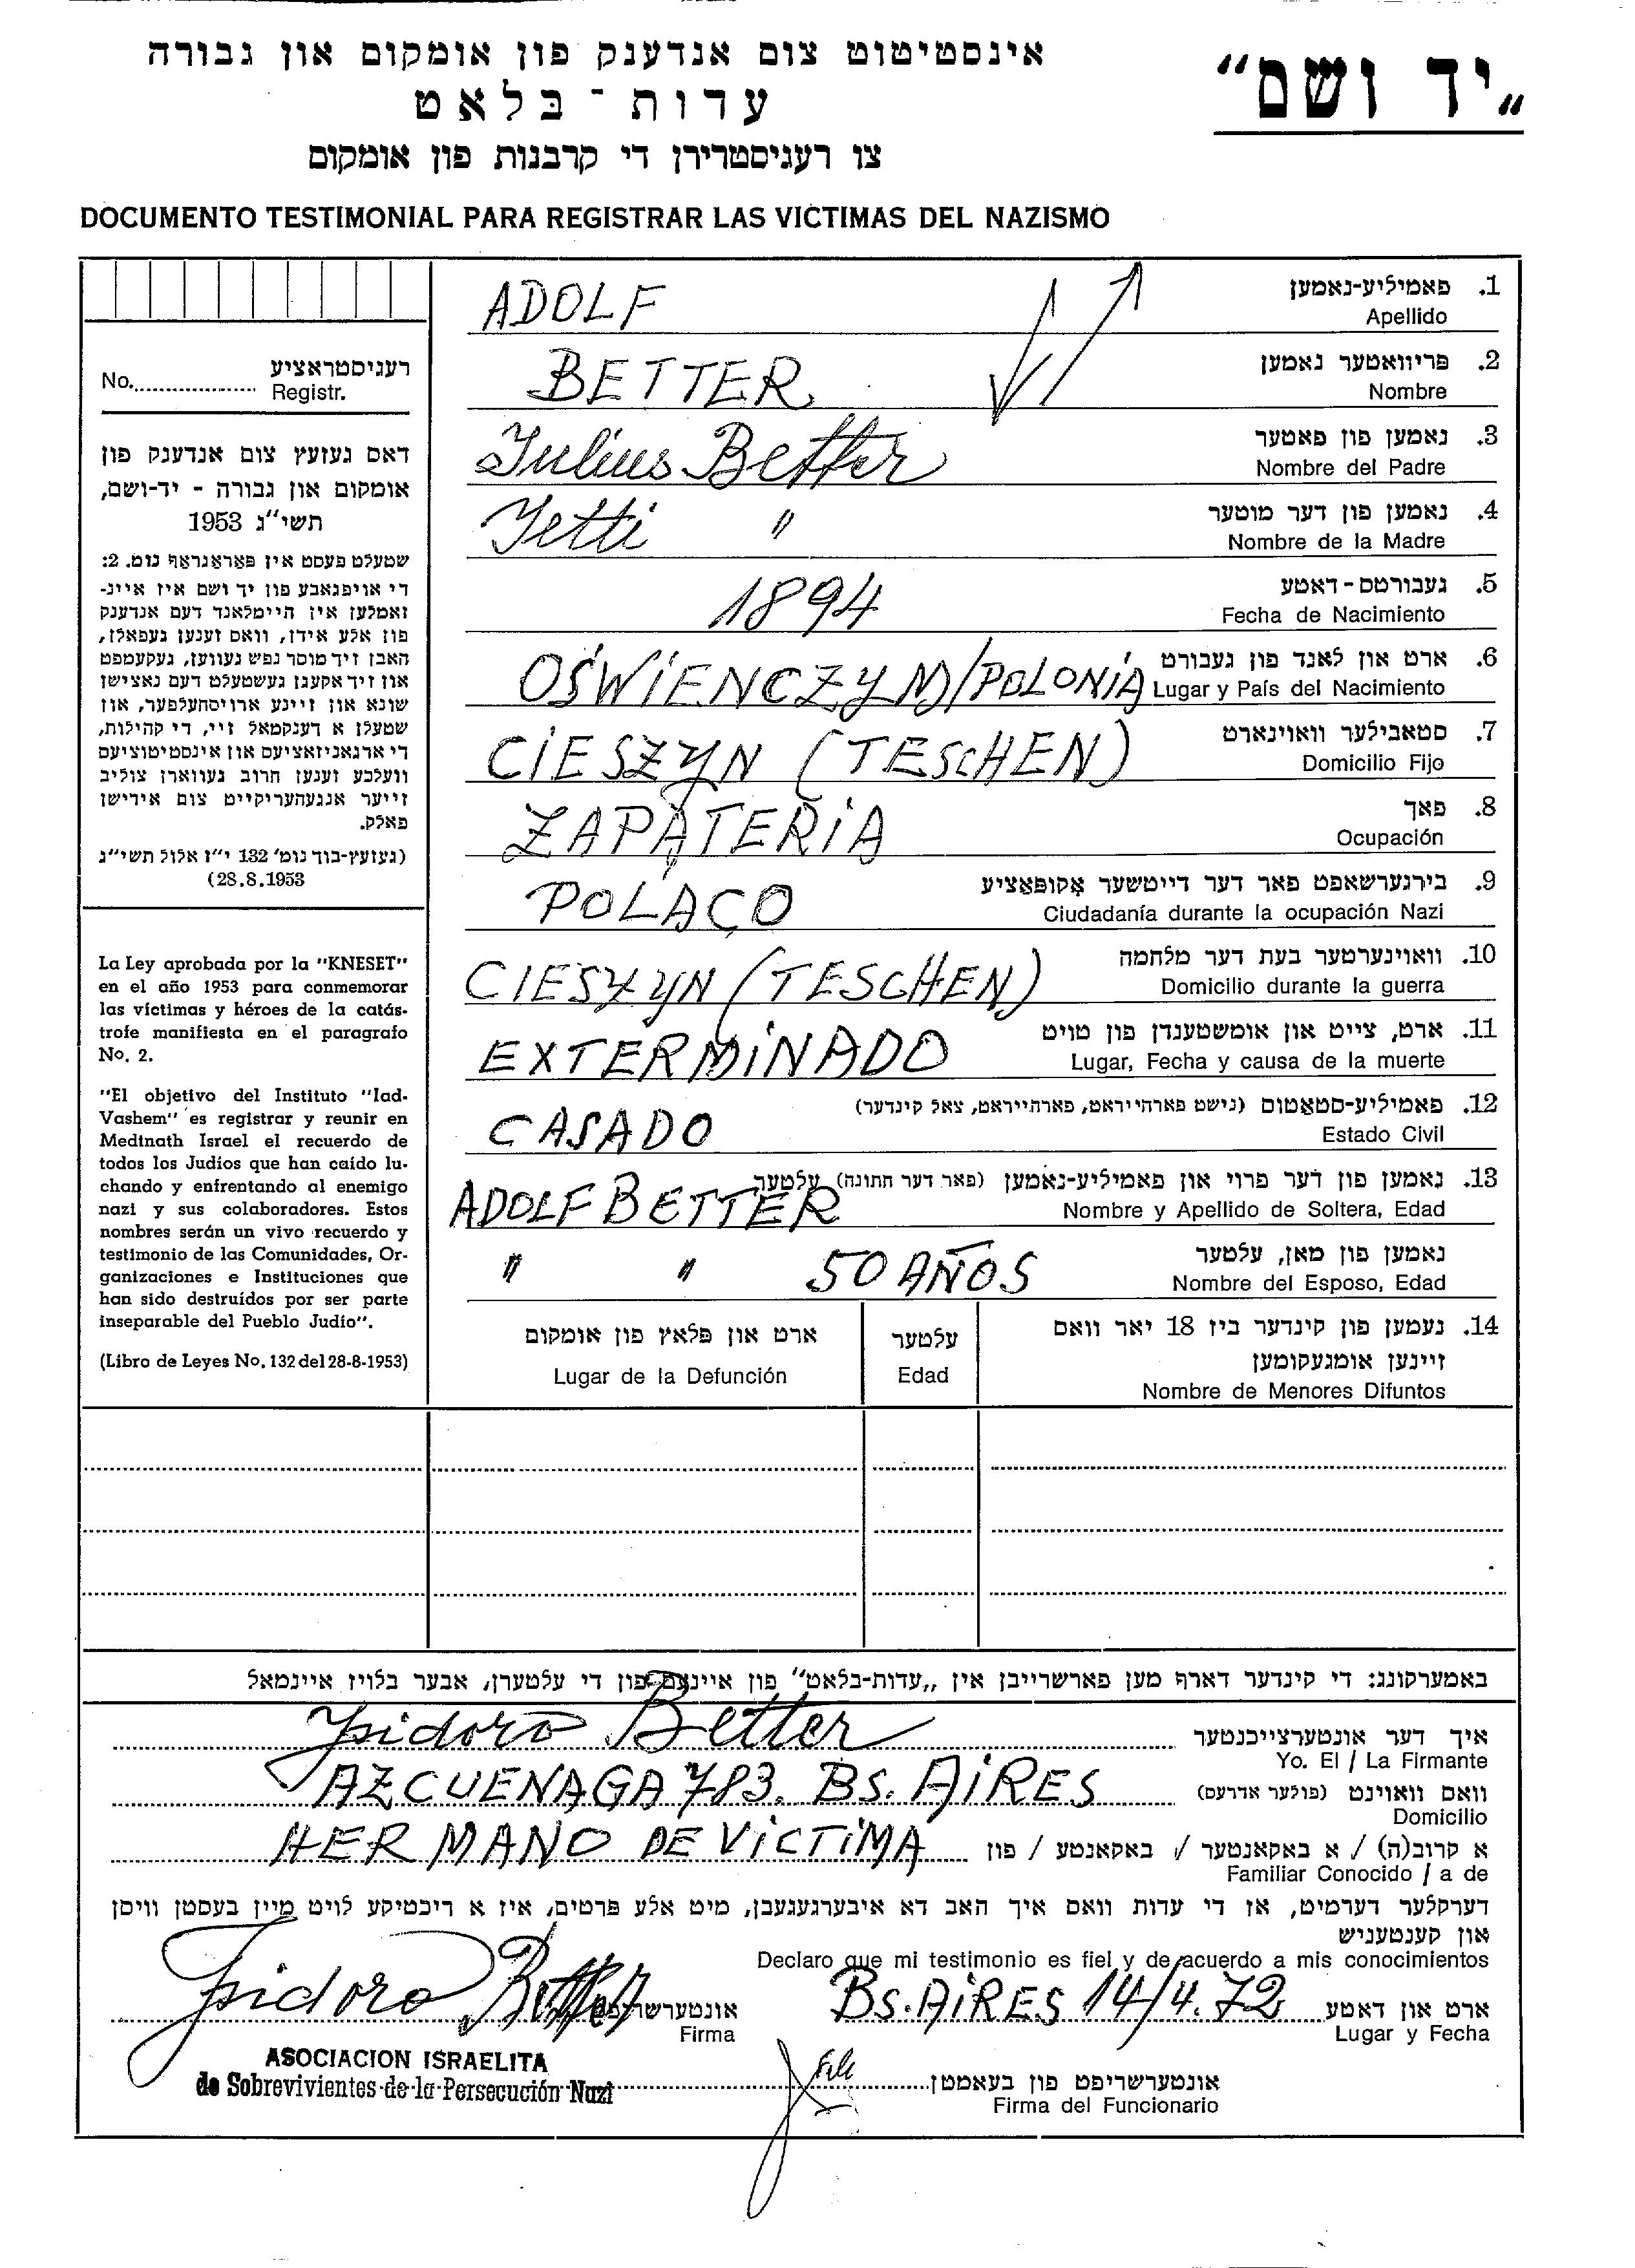 „יד ושם“
אינסטיטוט צום אנדענק פון אומקום און גבורה
עדות־בלאט
צו רעגיסטרירן די קרבנות פון אומקום
DOCUMENTO TESTIMONIAL PARA REGISTRAR LAS VICTIMAS DEL NAZISMO
רעגיסטראציע
No. Registr.
דאס געזעץ צום אנדענק פון
אומקום און גבורה - יד-ושם,
תשי״ג 1953
שטעלט פעסט אין פאראגראף נומ. 2:
די אויפגאבע פון יד ושם איז איינ-
זאמלען אין היימלאנד דעם אנדענק
פון אלע אידן, וואס זענען געפאלן,
האבן זיך מוסר נפש געווען, געקעמפט
און זיך אקעגן געשטעלט דעם נאצישן
שונא און זיינע ארויסהעלפער, און
שטעלן א דענקמאל זיי, די קהילות,
די ארגאניזאציעס און אינסטיטוציעס
וועלכע זענען חרוב געווארן צוליב
זייער אנגעהעריקייט צום אידישן
פאלק.
(געזעץ-בוך נומ׳ 132 י״ז אלול תשי״ג
28.8.1953)
La Ley aprobada por la "KNESET"
en el año 1953 para conmemorar
las víctimas y héroes de la catás-
trofe manifiesta en el paragrafo
No. 2.
"El objetivo del Instituto "Iad-
Vashem" es registrar y reunir en
Medinath Israel el recuerdo de
todos los Judios que han caído lu-
chando y enfrentando al enemigo
nazi y sus colaboradores. Estos
nombres serán un vivo recuerdo y
testimonio de las Comunidades, Or-
ganizaciones e Instituciones que
han sido destruídos por ser parte
inseparable del Pueblo Judío".
(Libro de Leyes No. 132 del 28-8-1953)
1. פאמיליע-נאמען
Apellido ADOLF
2. פריוואטער נאמען
Nombre BETTER
3. נאמען פון פאטער
Nombre del Padre Julius Better
4. נאמען פון דער מוטער
Nombre de la Madre Jetti "
5. געבורטס-דאטע
Fecha de Nacimiento 1894
6. ארט און לאנד פון געבורט
Lugar y País del Nacimiento OŚWIENCZYM/POLONIA
7. סטאבילער וואוינארט
Domicilio Fijo CIESZYN (TESCHEN)
8. פאך
Ocupación ZAPATERIA
9. בירגערשאפט פאר דער דייטשער אקופאציע
Ciudadanía durante la ocupación Nazi POLACO
10. וואוינערטער בעת דער מלחמה
Domicilio durante la guerra CIESZYN (TESCHEN)
11. ארט, צייט און אומשטענדן פון טויט
Lugar, Fecha y causa de la muerte EXTERMINADO
12. פאמיליע-סטאטוס (נישט פארהייראט, פארהייראט, צאל קינדער)
Estado Civil CASADO
13. נאמען פון דער פרוי און פאמיליע-נאמען (פאר דער חתונה) עלטער
Nombre y Apellido de Soltera, Edad ADOLF BETTER
נאמען פון מאן, עלטער
Nombre del Esposo, Edad " " 50 AÑOS
14. נעמען פון קינדער ביז 18 יאר וואס
זיינען אומגעקומען
Nombre de Menores Difuntos
עלטער
Edad
ארט און פלאץ פון אומקום
Lugar de la Defunción
באמערקונג: די קינדער דארף מען פארשרייבן אין „עדות-בלאט“ פון איינעם פון די עלטערן, אבער בלויז איינמאל
איך דער אונטערצייכנטער
Yo. El / La Firmante Ysidoro Better
וואס וואוינט (פולער אדרעס)
Domicilio AZCUENAGA 783. BS. AIRES
א קרוב(ה) / א באקאנטער / באקאנטע / פון
Familiar Conocido / a de HERMANO DE VICTIMA
דערקלער דערמיט, אז די עדות וואס איך האב דא איבערגעגעבן, מיט אלע פרטים, איז א ריכטיקע לויט מיין בעסטן וויסן
און קענטעניש
Declaro que mi testimonio es fiel y de acuerdo a mis conocimientos
ארט און דאטע
Lugar y Fecha BS. AIRES 14/4.72
אונטערשריפט
Firma Ysidoro Better
ASOCIACION ISRAELITA
de Sobrevivientes de la Persecución Nazi
אונטערשריפט פון בעאמטן
Firma del Funcionario